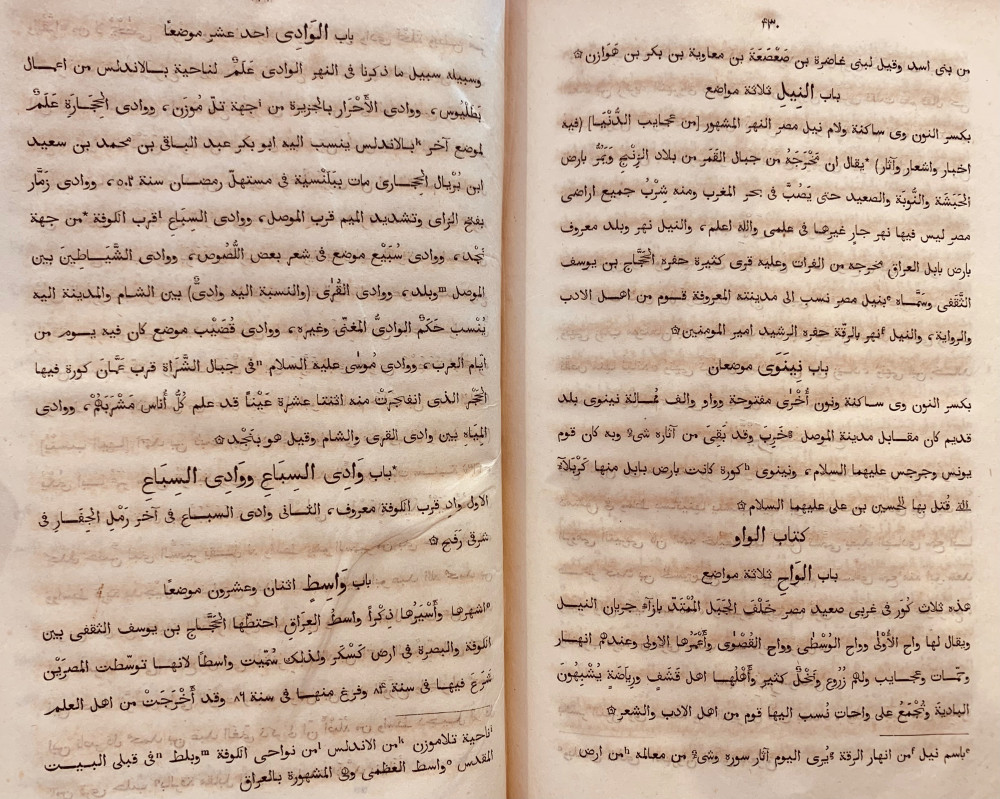 ٤٣٠
من بنى اسد وقيل لبنى غاضرة بن صَعْصَعَة بن معاوية بن بكر بن هَوَازن ۞
باب النِيل ثلاثة مواضع
بكسر النون وى ساكنة ولام نيل مصر النهر المشهور [من عجايب الدُّنْيَا] (فيه
اخبار واشعار وآثار) *يقال ان مَخْرَجَهُ من جبال القَمَر من بلاد الزِنْج وَيَمُرُّ بارض
الحَبَشَة والنُّوبَة والصعيد حتى يَصُبَّ فى بحر المغرب ومنه شِرْبُ جميع اراضى
مصر ليس فيها نهر جارٍ غيرها فى علمى والله اعلم، والنيل نهر وبلد معروف
بارض بابل العراق مخرجه من الفرات وعليه قرى كثيرة حفره الحَجَّاج بن يوسف
الثَّقَفى وسَمَّاه ᵉبنيل مصر نسب الى مدينته المعروفة قوم من اهل الادب
والرواية، والنيل ᶠنهر بالرقّة حفره الرشيد امير المومنين ۞
باب نِينَوَى موضعان
بكسر النون وى ساكنة ونون أُخْرَى مفتوحة وواو والف مُمالة نينوى بلد
قديم كان مقابل مدينة الموصل ᵍخَرِبَ وقد بَقِىَ من آثاره شىء وبه كان قوم
يونس وجرجس عليهما السلام، ونينوى ʰكورة كانت بارض بابل منها كَرْبَلَآءَ
الله قُتل بها الحسين بن على عليهما السلام ۞
كتاب الواو
باب الوَاحِ ثلاثة مواضع
هذه ثلاث كُوَر فى غربى صعيد مصر خَلْفَ الجَبَل المُمْتَدّ بازآء جريان النيل
ويقال لها واح الأُولَى وواح الوُسْطَى وواح القُصْوَى وأَعْمَرُها الاولى وعندهم انهار
وحَمّات وعجايب ولهم زُرُوع ونَخْلٌ كثير وأَهْلُها اهل قَشَف ورِيَاضَةٍ يُشْبِهُون
البادية وتُجْمَعُ على واحات نُسب اليها قوم من اهل الادب والشعر ۞
ᵉباسم نيل ᶠمن انهار الرقة ᵍيُرى اليوم آثار سوره وشىء من معالمه ʰمن ارض
باب الوَادِى احد عشر موضعًا
وسبيله سبيل ما ذكرنا فى النهر الوادى عَلَمٌ لناحية بالاندلس من اعمال
بَطَلْيُوس، ووادى الأَحْرَار بالجزيرة من ⁱجهة تلّ مُوزَن، ووادى الحِجَارَة عَلَمٌ
لموضع آخر ᵏبالاندلس ينسب اليه ابو بكر عبد الباقى بن محمد بن سعيد
ابن بُرْيال الحِجَارى مات ببَلَنْسِيَة فى مستهلّ رمضان سنة ٥٠٢، ووادى زَمَّار
بفتح الزاى وتشديد الميم قرب الموصل، ووادى السِبَاع ˡقرب الكوفة *من جهة
نَجْد، ووادى سُبَيْع موضع فى شعر بعض اللُّصُوص، ووادى الشَّيَاطِين بين
الموصل ᵐوبلد، ووادى القُرَى (والنسبة اليه وادىٌّ) بين الشام والمدينة اليه
يُنْسب حَكَمٌ الوادىُّ المغنّى وغيره، ووادى قُضَيْب موضع كان فيه يوم من
ايام العرب، ووادى مُوسَى عليه السلام ⁿفى جبال الشَّرَاة قرب عَمَّانَ كورة فيها
الحَجَر الذى انفجرتْ منه اثنتا عشرة عَيْنًا قد علم كُلُّ أُناس مَشْرَبَهُمْ، ووادى
المِيَاه بين وادى القرى والشام وقيل هو بنَجْد ۞
*باب وَادِى السِبَاعِ ووَادِى السِبَاعِ
الاول واد قرب الكوفة معروف، الثانى وادى السباع فى آخر رَمْل الجِفَار فى
شرقى رَفَحَ ۞
باب وَاسِطٍ اثنان وعشرون موضعًا
ᵒاشهرها وأَسْيَرُها ذِكْرًا واسطُ العِرَاق احتطّها الحَجَّاج بن يوسف الثقفى بين
الكوفة والبصرة فى ارض كَسْكَر ولذلك سُمّيت واسطًا لانها توسّطت المصرَيْن
شَرَعَ فيها فى سنة ٨٤ وفرغ منها فى سنة ٨٦ وقد أَخْرَجَتْ من اهل العلم
ⁱناحية تلاموزن ᵏمن الاندلس ˡمن نواحى الكوفة ᵐوبلط ⁿفى قبلى البيت
المقدس ᵒواسط العظمى وهى المشهورة بالعراق